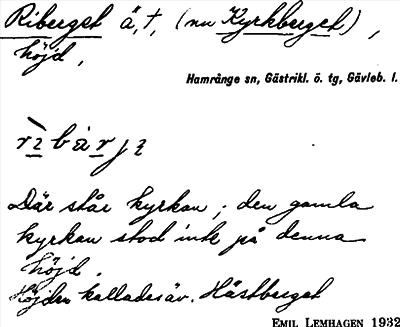 Riberget ä, †, (nu Kyrkberget),
höjd,
Hamrånge sn, Gästrikl. ö. tg, Gävleb. l.
Där står kyrkan; den gamla
kyrkan stod inte på denna
höjd.
Höjden kallades äv. Hästberget
EMIL LEMHAGEN 1932